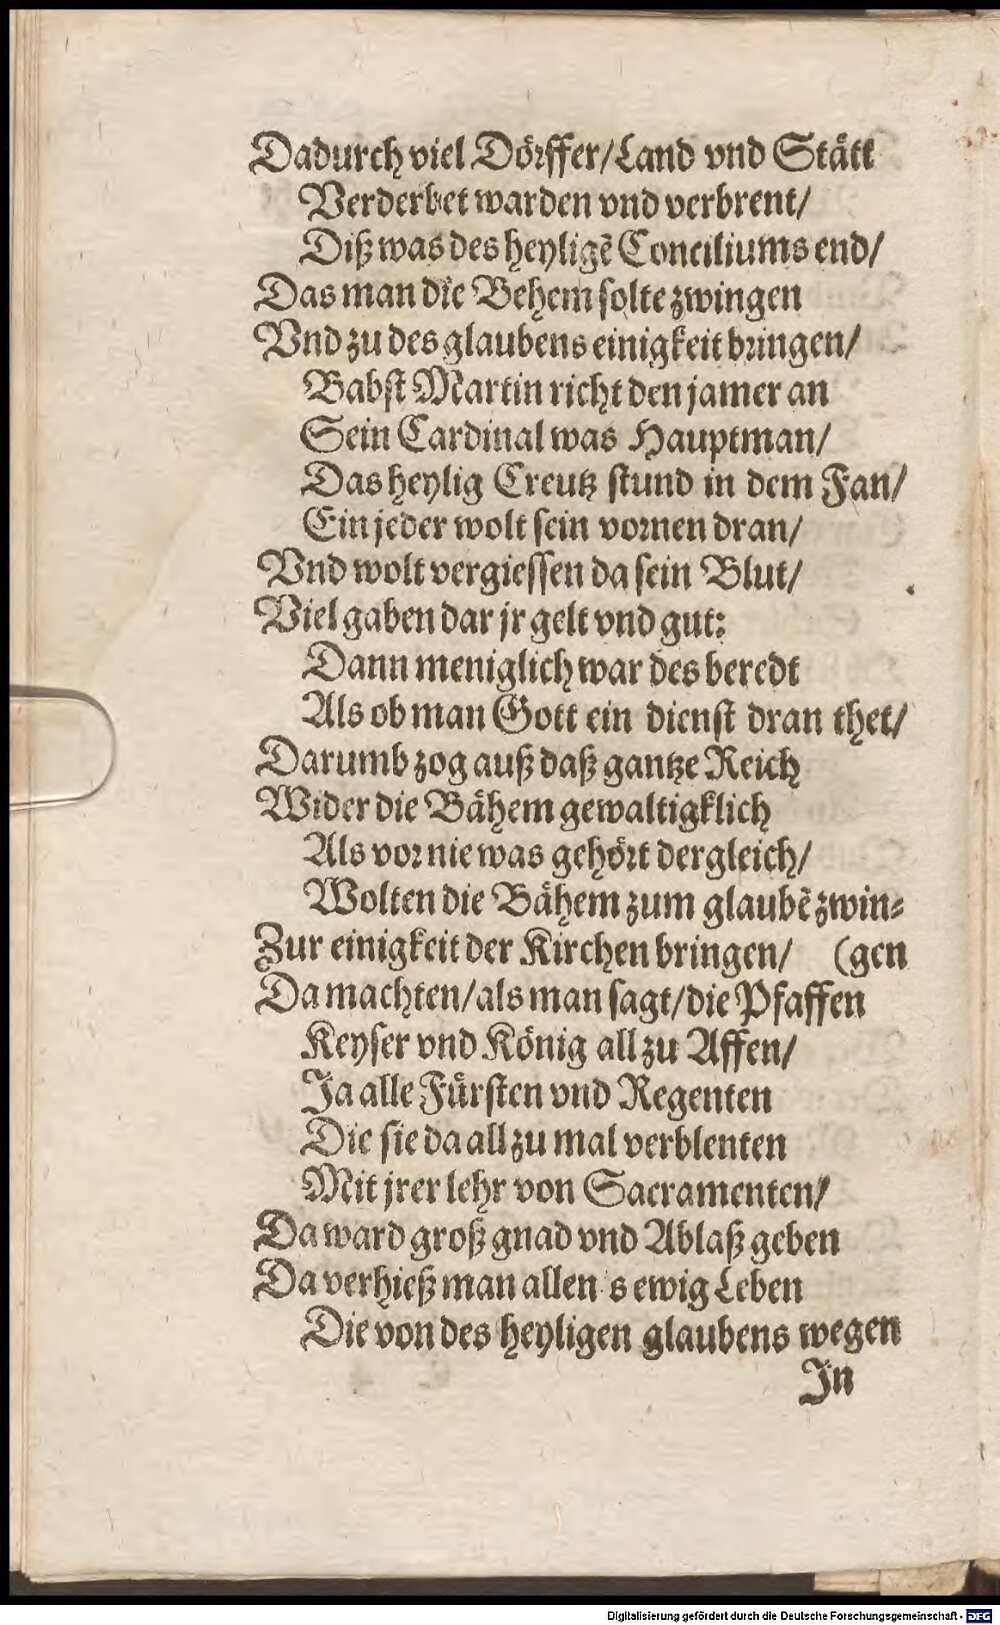 Dadurch viel Dörffer/Land vnd Stätt
Verderbet warden vnd verbrent/
Diß was des heyligẽ Conciliums end/
Das man die Behem solte zwingen
Vnd zu des glaubens einigkeit bringen/
Babst Martin richt den jamer an
Sein Cardinal was Hauptman/
Das heylig Creutz stund in dem Fan/
Ein jeder wolt sein vornen dran/
Vnd wolt vergiessen da sein Blut/
Viel gaben dar jr gelt vnd gut:
Dann meniglich war des beredt
Als ob man Gott ein dienst dran thet/
Darumb zog auß daß gantze Reich
Wider die Bähem gewaltigklich
Als vor nie was gehört dergleich/
Wolten die Bähem zum glaubẽ zwin-
Zur einigkeit der Kirchen bringen/ (gen
Da machten/als man sagt/die Pfaffen
Keyser vnd König all zu Affen/
Ja alle Fürsten vnd Regenten
Die sie da all zu mal verblenten
Mit jrer lehr von Sacramenten/
Da ward groß gnad vnd Ablaß geben
Da verhieß man allen s ewig Leben
Die von des heyligen glaubens wegen
In
Digitalisierung gefördert durch die Deutsche Forschungsgemeinschaft - DFG